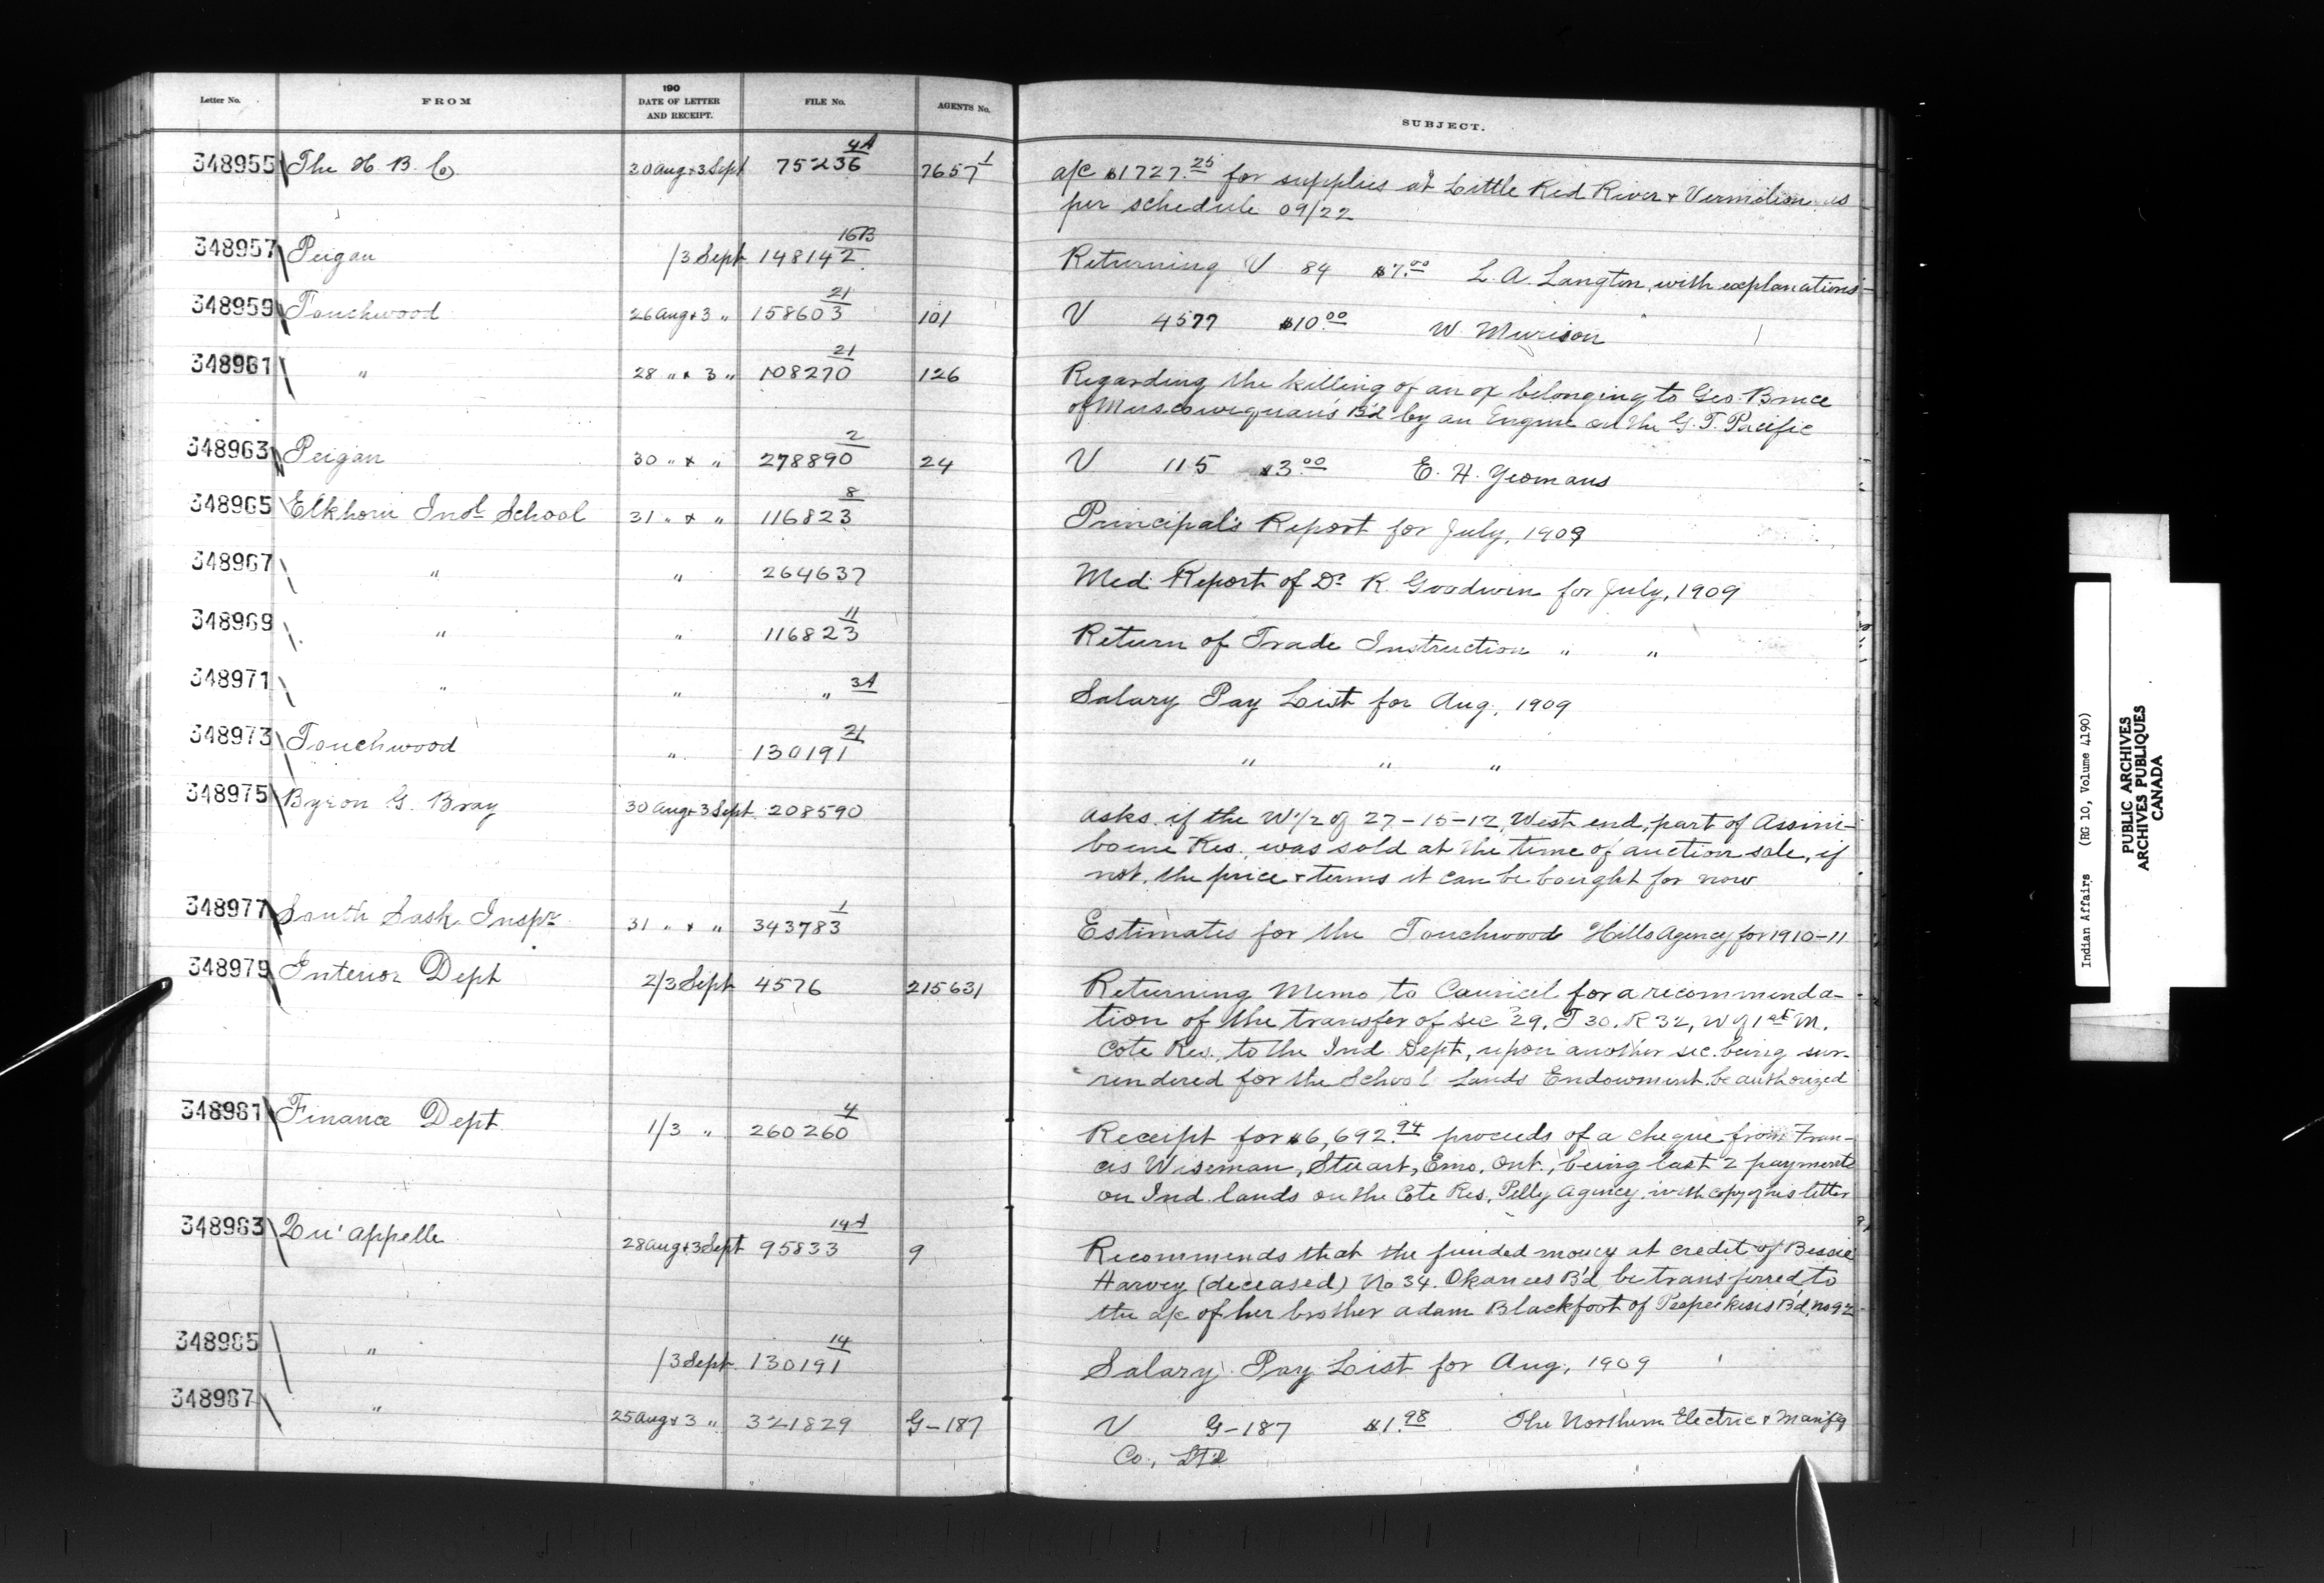 Letter No. FROM 190 DATE OF LETTER AND RECEIPT. FILE No. AGENTS No. SUBJECT.
348955 The H. B. Co 30 Aug & 3 Sept 75236 4A 7657 1 a/c $1727.25 for supplies at Little Red River & Vermilion as
per schedule 09/22
348957 Peigan /3 Sept 148142 16B Returning V 84 $7.00 L. A. Langton, with explanations-
348959 Touchwood 26 Aug & 3 " 158603 21 101 V 4577 $10.00 W. Murison
348961 " 28 " & 3 " 108270 21 126 Regarding the killing of an ox belonging to Geo. Bruce
of Muscowequan's B'd by an Engine on the G. T. Pacific
348963 Peigan 30 " & " 278890 2 24 V 115 $3.00 E. H. Yeomans
348965 Elkhorn Indl School 31 " & " 116823 8 Principal's Report for July, 1909
348967 " " 264637 Med. Report of Dr R. Goodwin for July, 1909
348969 " " 116823 11 Return of Trade Instruction " "
348971 " " " 3A Salary Pay List for Aug, 1909
348973 Touchwood " 130191 21 " " "
348975 Byron G. Bray 30 Aug & 3 Sept. 208590 asks if the W 1/2 of 27-15-12, West end, part of Assini-
boine Res., was sold at the time of auction sale, if
not, the price & terms it can be bought for now
348977 South Sask. Inspr 31 " & " 343783 1 Estimates for the Touchwood Hills Agency for 1910-11
348979 Interior Dept 2/3 Sept 4576 215631 Returning Memo, to Council for a recommenda-
tion of the transfer of sec 29, T 30, R 32, W of 1st M.
Cote Res., to the Ind. Dept, upon another sec. being sur-
rendered for the School Lands Endowment be authorized
348981 Finance Dept 1/3 " 260260 4 Receipt for $6,692.94 proceeds of a cheque from Fran-
cis Wiseman, Stuart, Emo, Ont., being last 2 payments
on Ind. lands on the Cote Res, Pelly Agency, with copy of his letter
348983 Qu'appelle 28 Aug & 3 Sept 95833 14A 9 Recommends that the funded money at credit of Bessie
Harvey (deceased) No 34. Okanees B'd, be transferred to
the a/c of her brother Adam Blackfoot of Peepeekisis B'd, No 92
348985 " /3 Sept. 130191 14 Salary Pay List for Aug, 1909
348987 " 25 Aug & 3 " 321829 G-187 V G-187 $1.98 The Northern Electric & Manfg
Co., Ltd
Indian Affairs (RG 10, Volume 4190)
PUBLIC ARCHIVES
ARCHIVES PUBLIQUES
CANADA